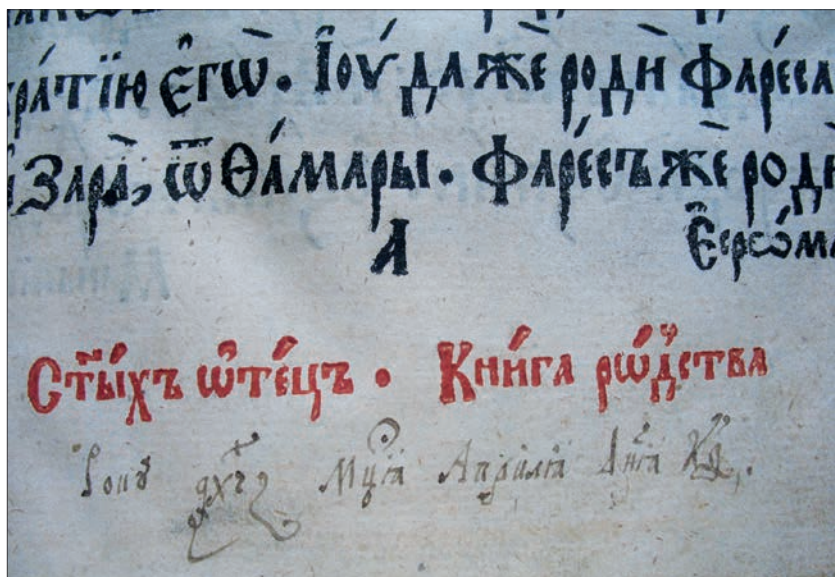 ра́тїю є҆гѡ̀. І҆оу́да жѐ родѝ Фаре́са
и҆ Зара̀, ѿ Ѳа́мары. Фаре́съ жѐ роди
А Е҆срѡ́ма
Ст҃ы́хъ ѡ҆те́цъ. Кни́га рѡ́дства
Мц҃а Априлїа Дн҃ѧ